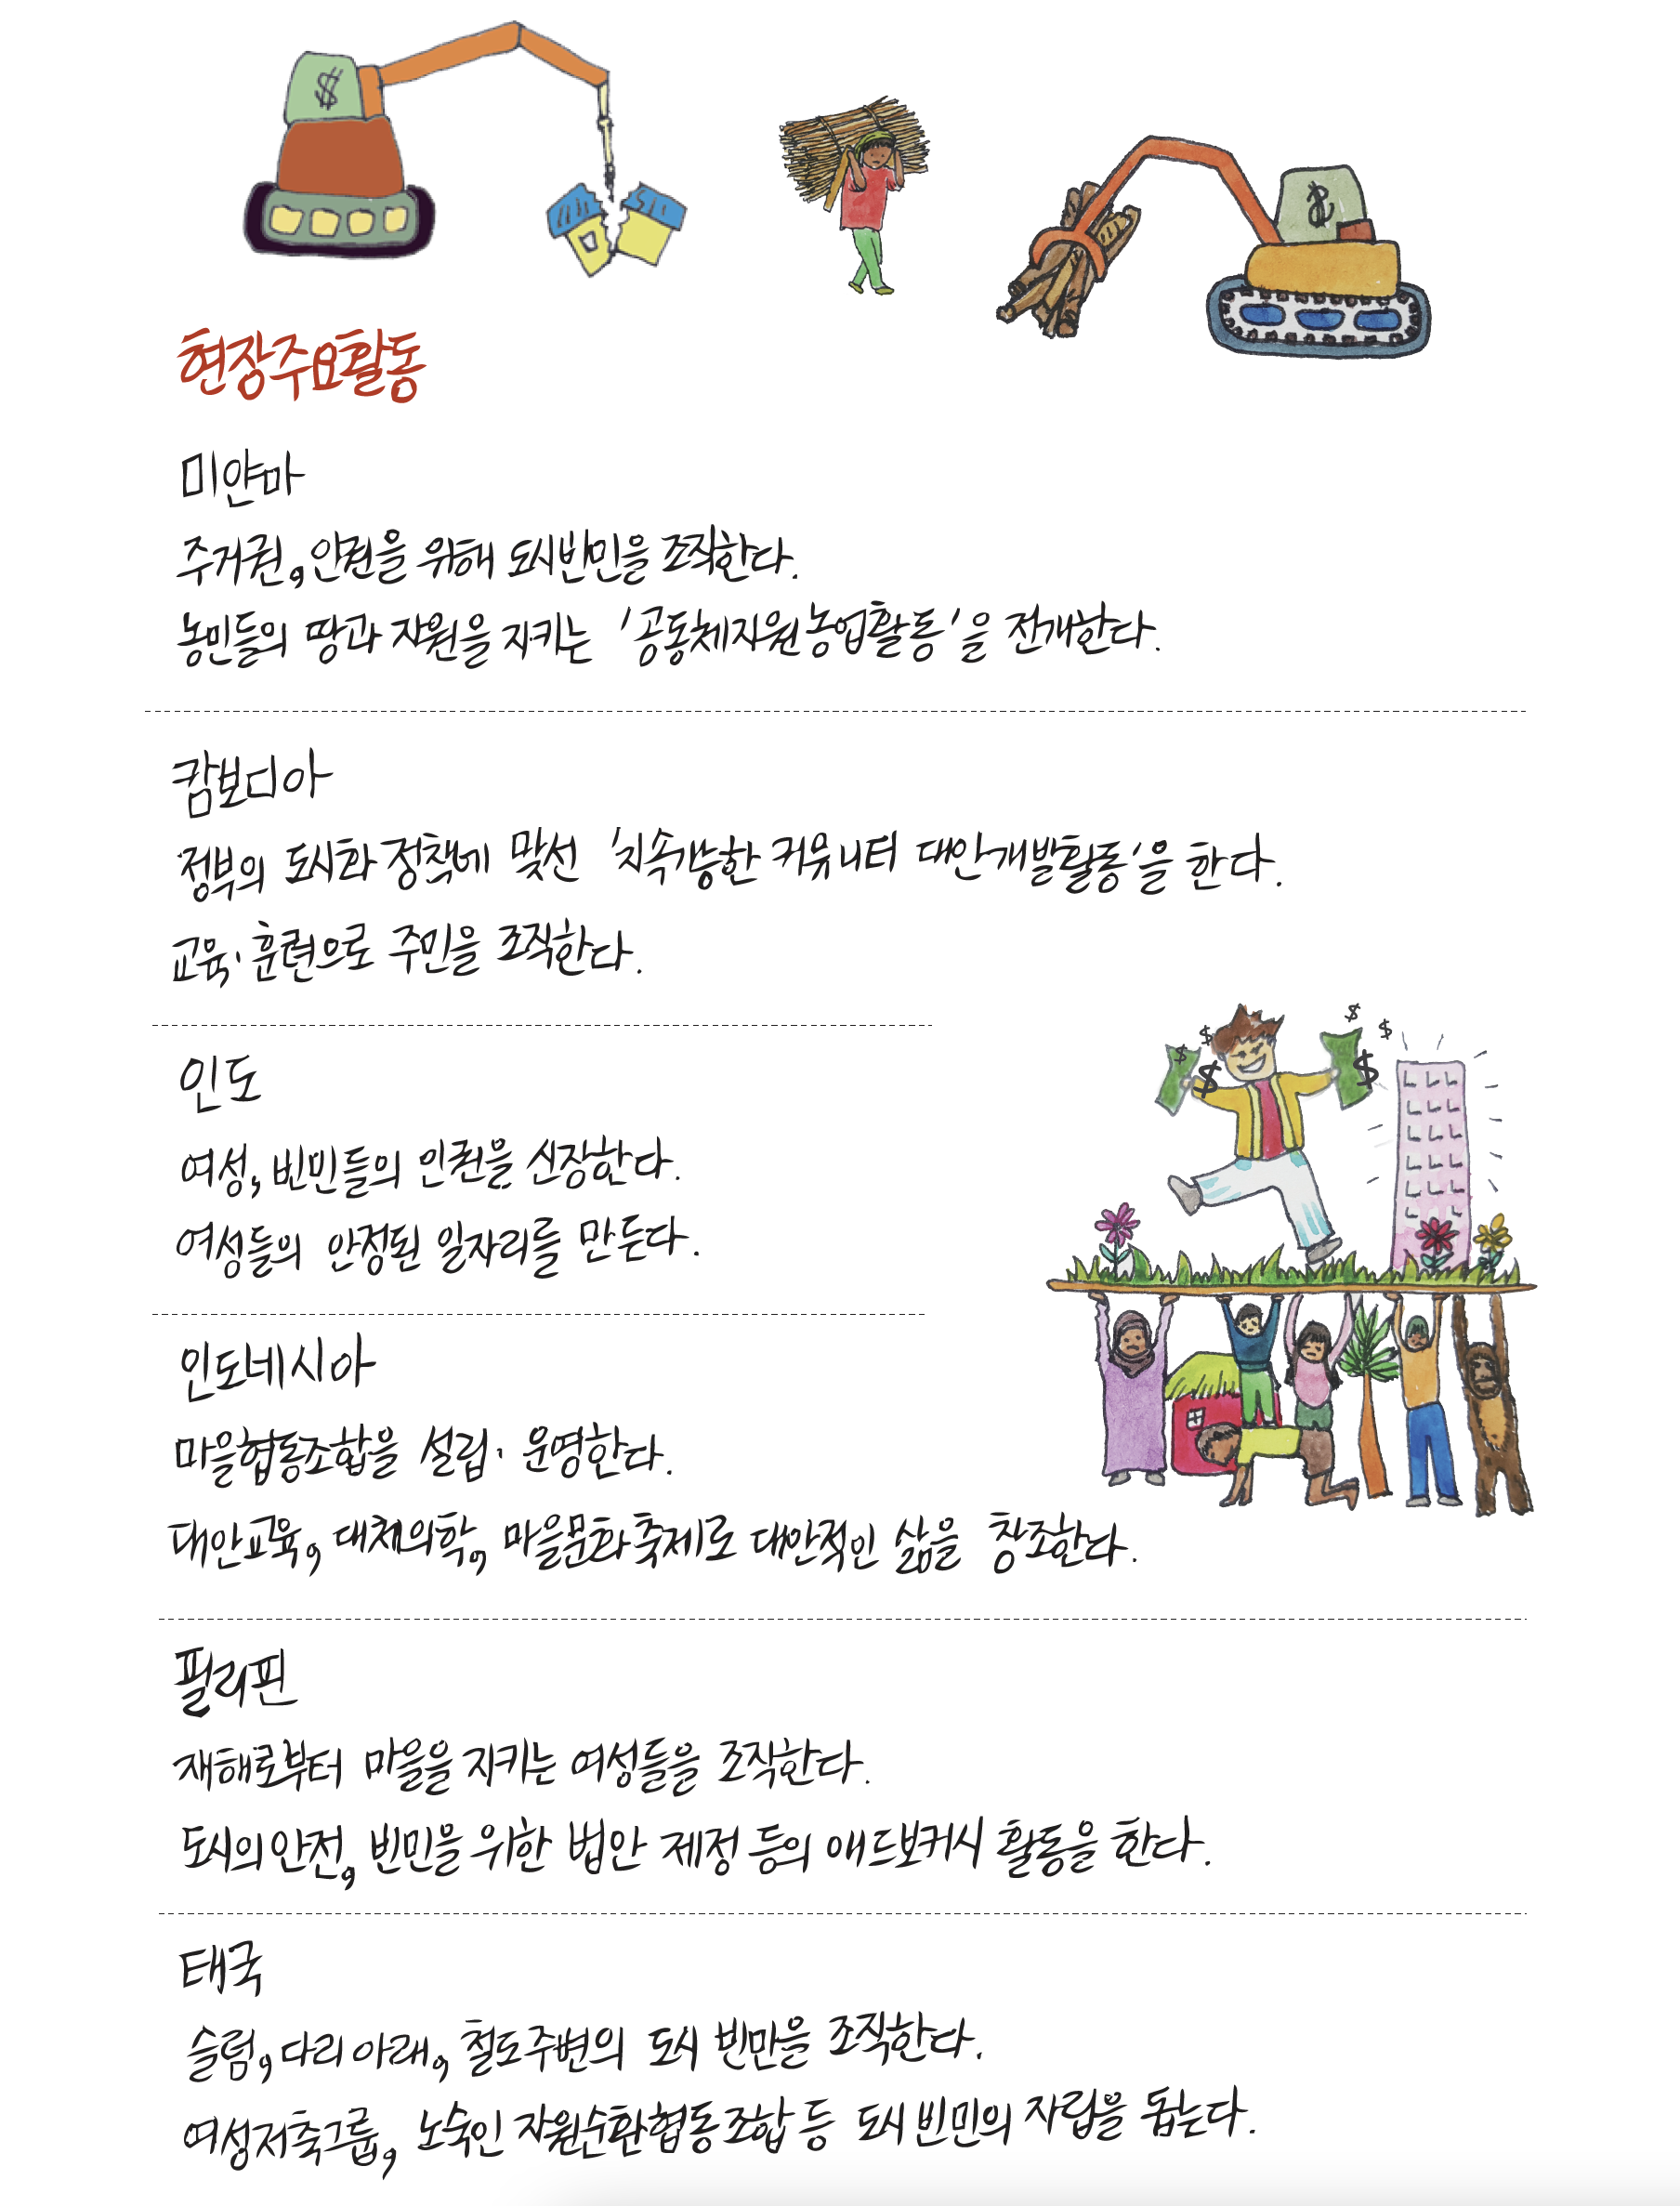 $
$
현장주요활동
미얀마
주거권, 인권을 위해 도시빈민을 조직한다.
농민들의 땅과 자원을 지키는 '공동체자원농업활동'을 전개한다.
캄보디아
정부의 도시화 정책에 맞선 '지속가능한 커뮤니터 대안개발활동'을 한다.
교육·훈련으로 주민을 조직한다.
$ $ $ $ $ $
인도
여성, 빈민들의 인권을 신장한다.
여성들의 안정된 일자리를 만든다.
인도네시아
마을협동조합을 설립·운영한다.
대안교육, 대체의학, 마을문화축제로 대안적인 삶을 창조한다.
필리핀
재해로부터 마을을 지키는 여성들을 조직한다.
도시의 안전, 빈민을 위한 법안 제정 등의 애드보커시 활동을 한다.
태국
슬럼, 다리 아래, 철도주변의 도시 빈만을 조직한다.
여성저축그룹, 노숙인 자원순환협동조합 등 도시 빈민의 자립을 돕는다.